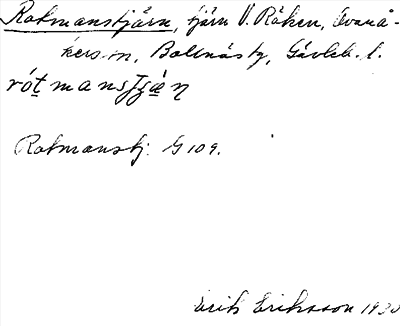 Rotmanstjärn, tjärn V. Röken, Ovanå-
kers sn, Bollnäs tg, Gävleb. l.
Rotmanstj. G 109.
Erik Eriksson 1930